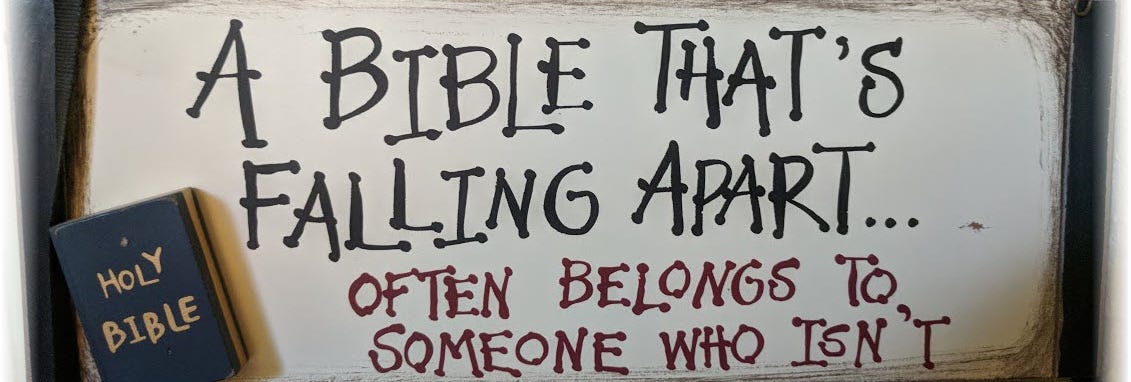 A BIBLE THAT'S
FALLING APART...
OFTEN BELONGS TO
SOMEONE WHO ISN'T
HOLY
BIBLE